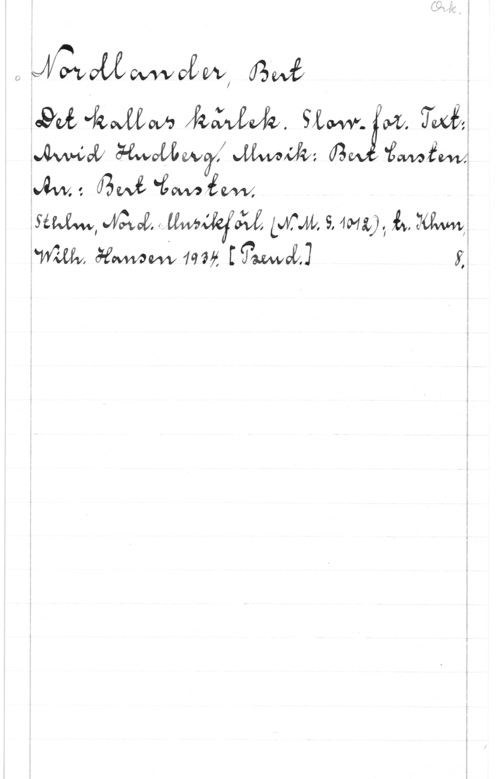 Ork.
Nordlander, Bert
Det kallas kärlek. Slow-fox. Text:
Arvid Hudberg/. Musik: Bert Carsten.
Arr.: Bert Carsten.
Sthlm, Nord. Musikförl. (N.M.S. 1012); tr. Khvn,
Wilh. Hansen 1934. [Pseud.] 8.